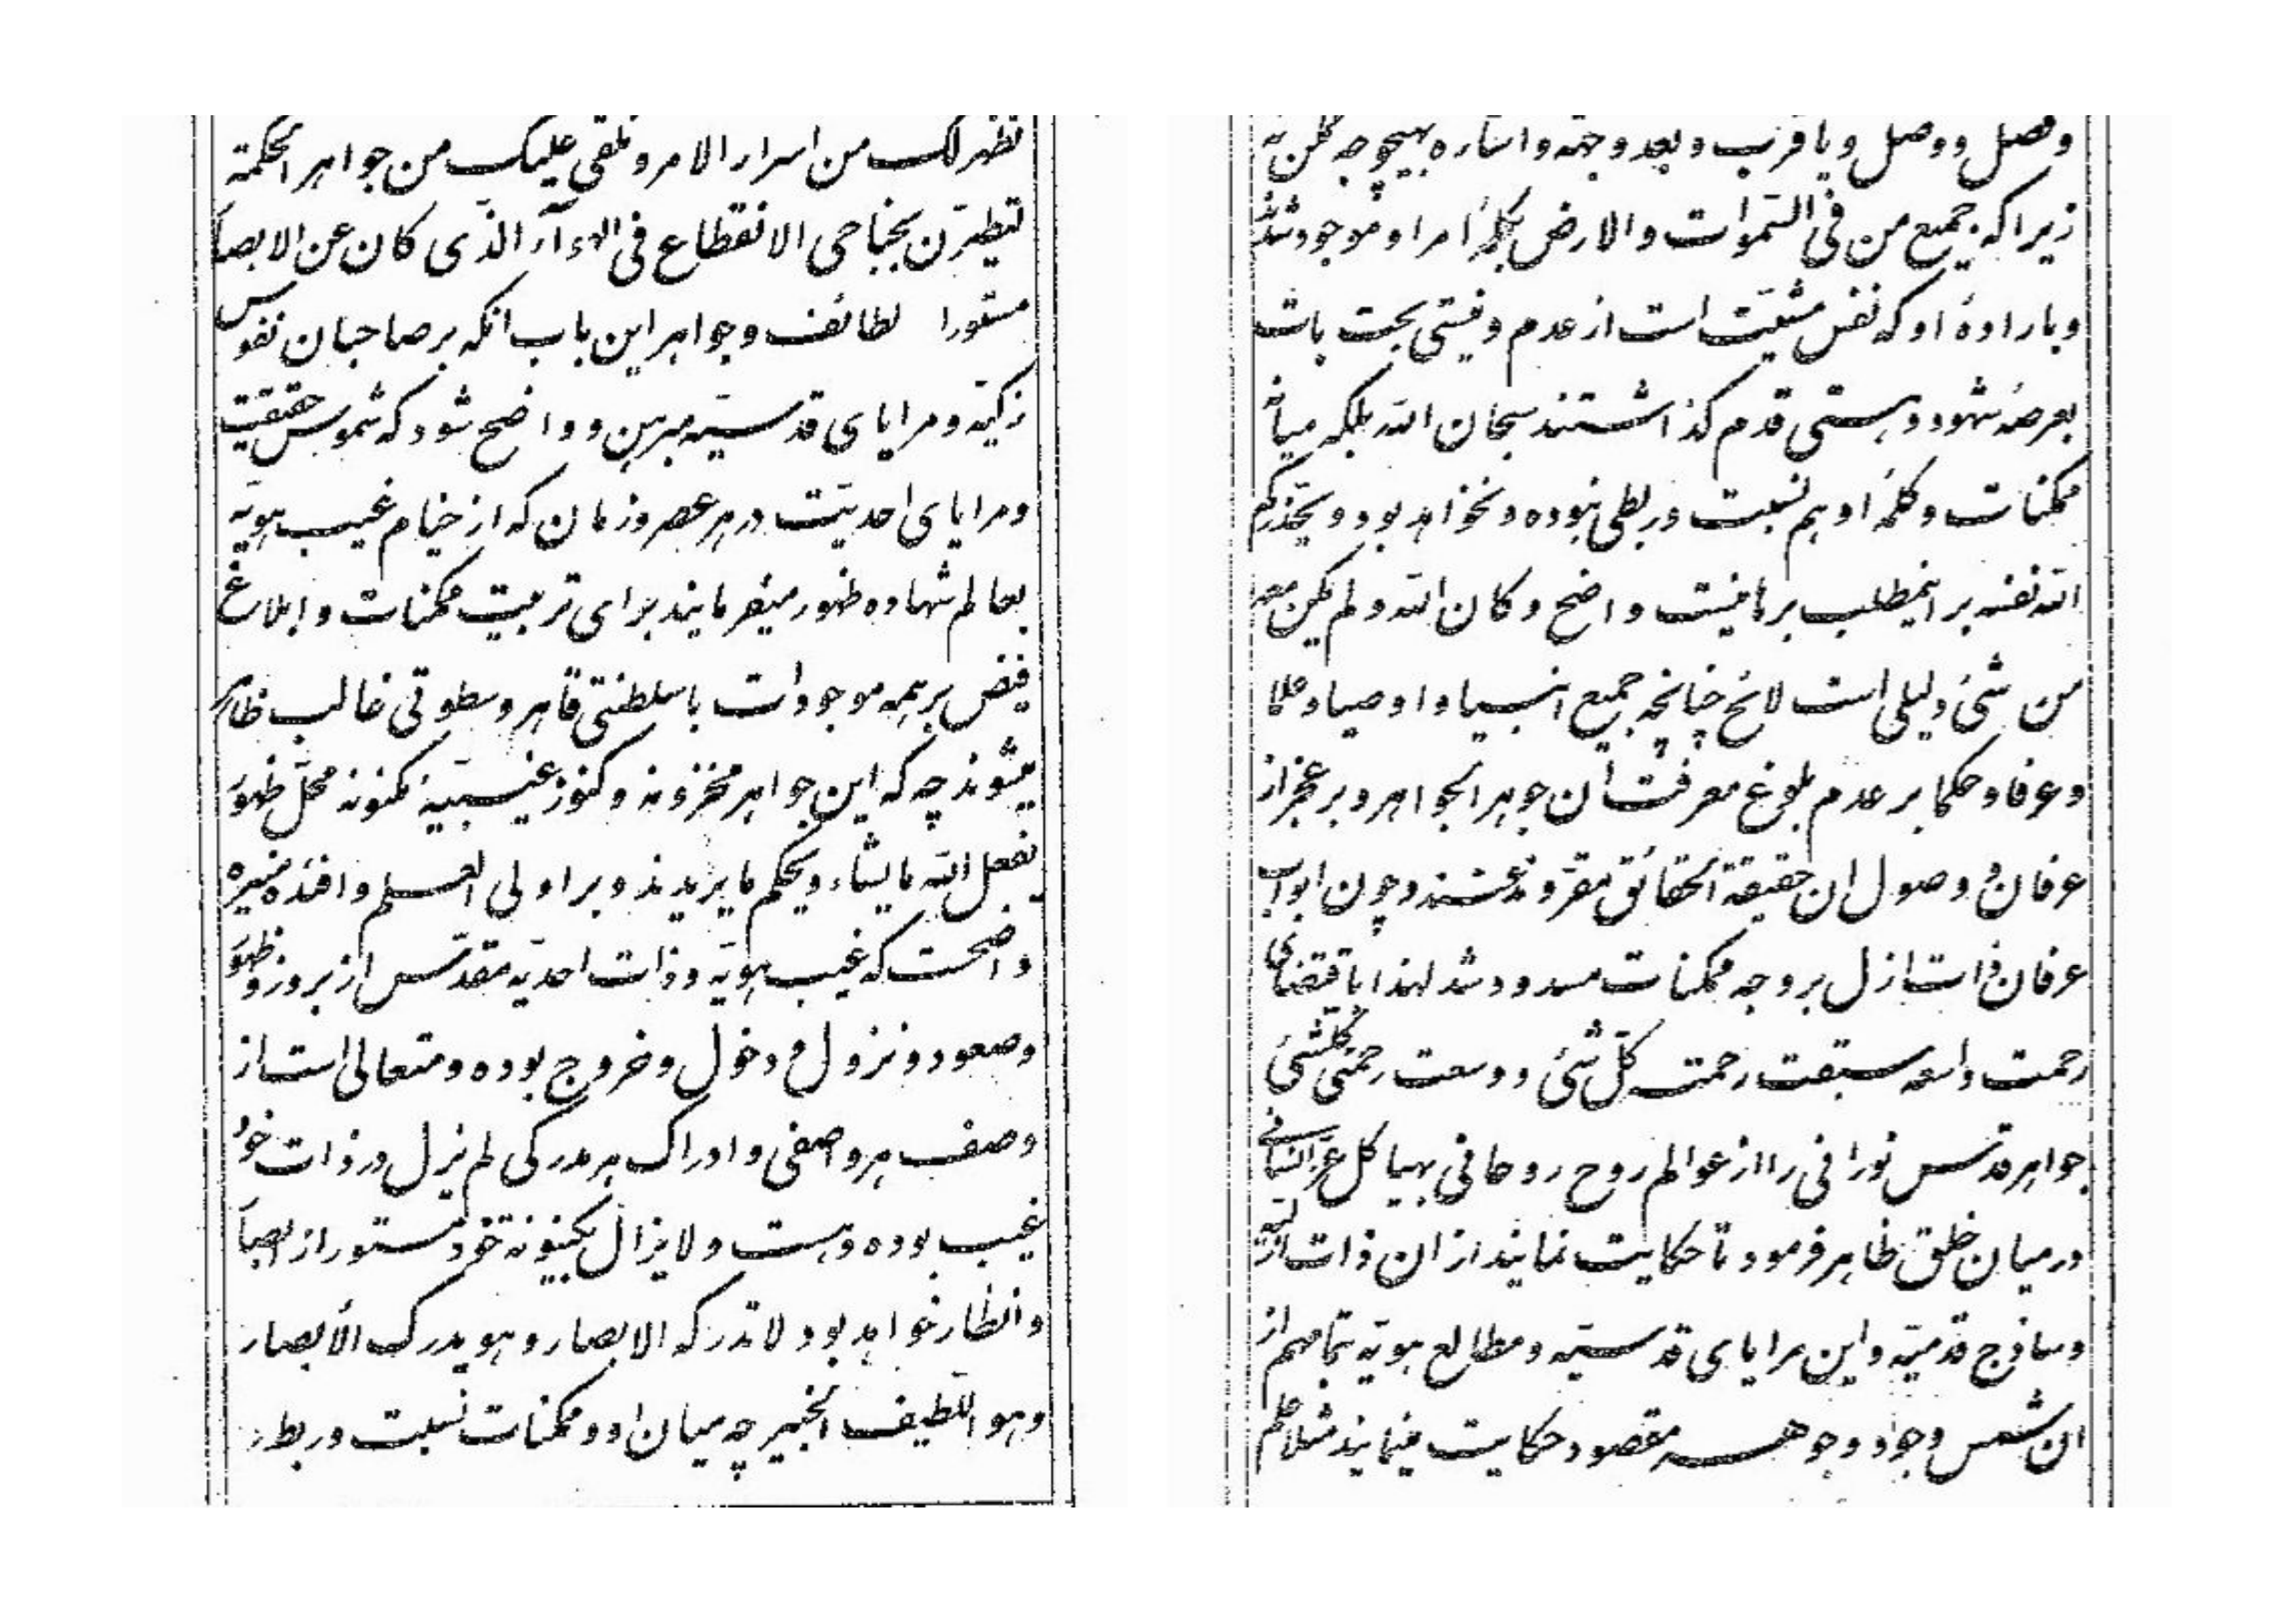 نظهر لک من اسرار الامر و نلقی علیک من جواهر الحکمة
لتطیرّن بجناحی الانقطاع فی الهوآء الذّی کان عن الابصا
مستورا لطائف و جواهر این باب انکه بر صاحبان نفوس
زکیّه و مرایای قدسیّه مبرهن و واضح شود که شموس حقیقت
و مرایای احدیّت در هر عصر و زمان که از خیام غیب هویّه
بعالم شهاده ظهور میفرمایند برای تربیت ممکنات و ابلاغ
فیض بر همه موجودات با سلطنتی قاهر و سطوتی غالب ظاهر
میشوند چه که این جواهر مخزونه و کنوز غیبیّهٔ مکنونه محلّ ظهور
یفعل اللّه ما یشاء و یحکم ما یریدند و بر اولی العلم و افئدهٔ منیره
واضحست که غیب هویّه و ذات احدیّه مقدّس از بروز و ظهور
و صعود و نزول و دخول و خروج بوده و متعالی است از
وصف هر واصفی و ادراک هر مدرکی لم یزل در ذات خود
غیب بوده و هست و لا یزال بکینونة خود مستور از ابصا
و انظار خواهد بود لا تدرکه الابصار و هو یدرک الأبصار
و هو اللّطیف الخبیر چه میان او و ممکنات نسبت و ربط و
و فصل و وصل و یا قرب و بعد و جهة و اشاره بهیچوجه ممکن نه
زیرا که جمیع من فی السّموات و الارض بکلمهٔ امر او موجود شدند
و باراده او که نفس مشیّت است از عدم و نیستی بحت بات
بعرصهٔ شهود و هستی قدم گذاشتند سبحان اللّه بلکه میانهٔ
ممکنات و کلمهٔ او هم نسبت و ربطی نبوده و نخواهد بود و یحذّرکم
اللّه نفسه بر اینمطلب برهانیست واضح و کان اللّه و لم یکن معه
من شیٔ دلیلی است لائح چنانچه جمیع انبیا و اوصیا و علما
و عرفا و حکما بر عدم بلوغ معرفت ان جوهر الجواهر و بر عجز از
عرفان و وصول ان حقیقة الحقائق مقرّ و مذعنند و چون ابواب
عرفان ذات ازل بر وجه ممکنات مسدود شد لهذا باقتضای
رحمت واسعه سبقت رحمته کلّ شیٔ و وسعت رحمتی کلّشیٔ
جواهر قدس نورانی را از عوالم روح روحانی بهیاکل عزّ انسانی
در میان خلق ظاهر فرمود تا حکایت نمایند از ان ذات ازلیّه
و ساذج قدمیّه و این مرایای قدسیّه و مطالع هویّه بتمامهم از
ان شمس وجود و جوهر مقصود حکایت مینمایند مثلا علم